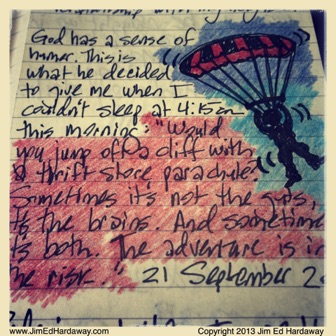 God has a sense of
humor. This is
what he decided
to give me when I
couldn't sleep at 4:15am
this morning: "Would
you jump off a cliff with
a thrift store parachute?
Sometimes it's not the guts,
t's the brains. And sometime
t's both. The adventure is i
he risk." 21 September 2
www.JimEdHardaway.com Copyright 2013 Jim Ed Hardaway